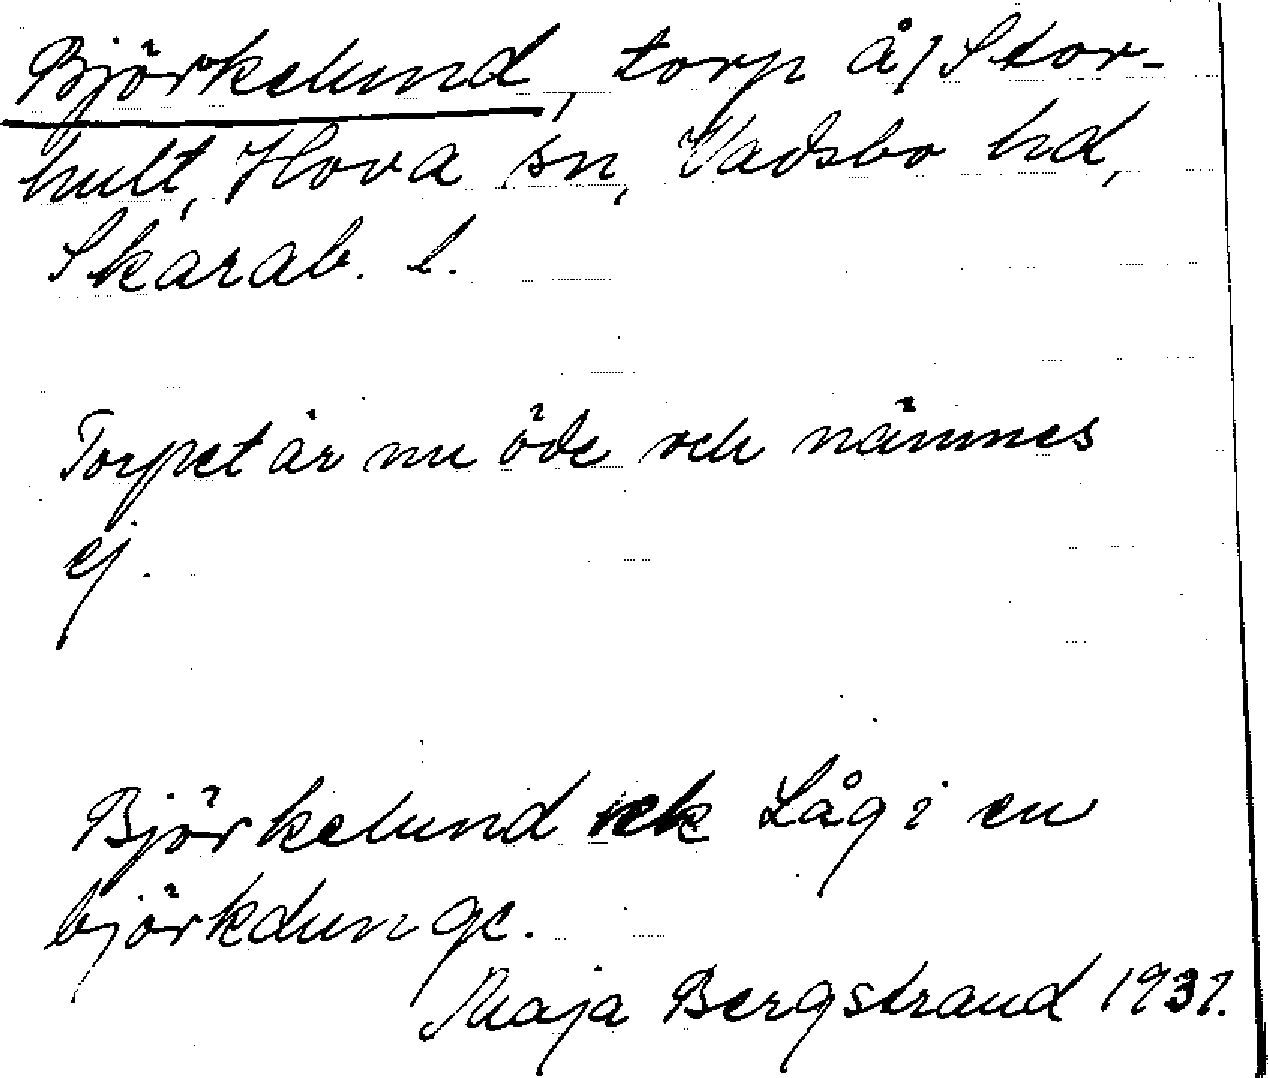 Björkelund, torp å/Stor-
hult, Hova sn, Vadsbo hd,
Skarab. l.
Torpet är nu öde och nämnes
ej.
Björkelund låg i en
björkdunge.
Maja Bergstrand 1931.